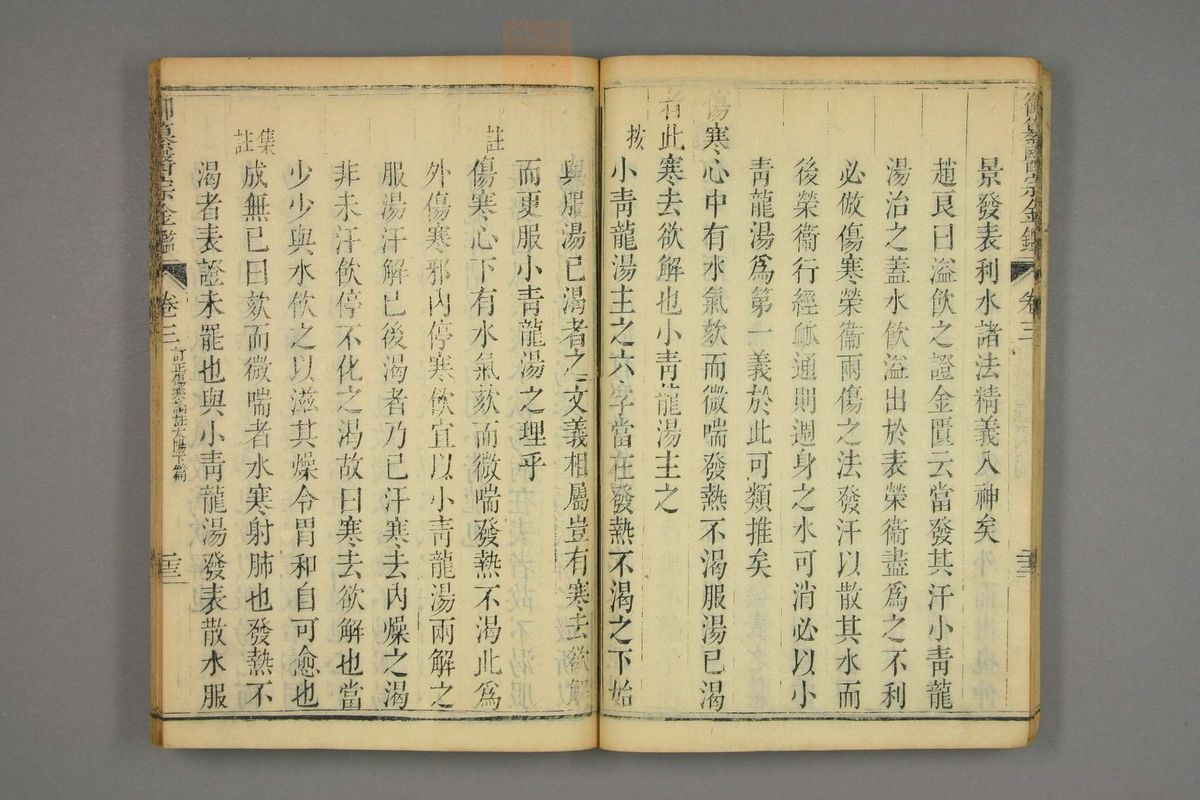 御纂醫宗金鑑 卷三
景發表利水諸法精義入神矣
趙良曰溢飲之證金匱云當發其汗小青龍
湯治之蓋水飲溢出於表榮衞盡爲之不利
必倣傷寒榮衞兩傷之法發汗以散其水而
後榮衞行經䘑通則週身之水可消必以小
青龍湯爲第一義於此可類推矣
傷寒心中有水氣欬而微喘發熱不渴服湯已渴
者此寒去欲解也小青龍湯主之
按 小青龍湯主之六字當在發熱不渴之下始
與服湯已渴者之文義相屬豈有寒去欲解
而更服小青龍湯之理乎
註 傷寒心下有水氣欬而微喘發熱不渴此爲
外傷寒邪內停寒飲宜以小青龍湯兩解之
服湯汗解已後渴者乃已汗寒去內燥之渴
非未汗飲停不化之渴故曰寒去欲解也當
少少與水飲之以滋其燥令胃和自可愈也
集註 成無已曰欬而微喘者水寒射肺也發熱不
渴者表證未罷也與小青龍湯發表散水服
御纂醫宗金鑑 卷三 訂正傷寒論註太陽下篇